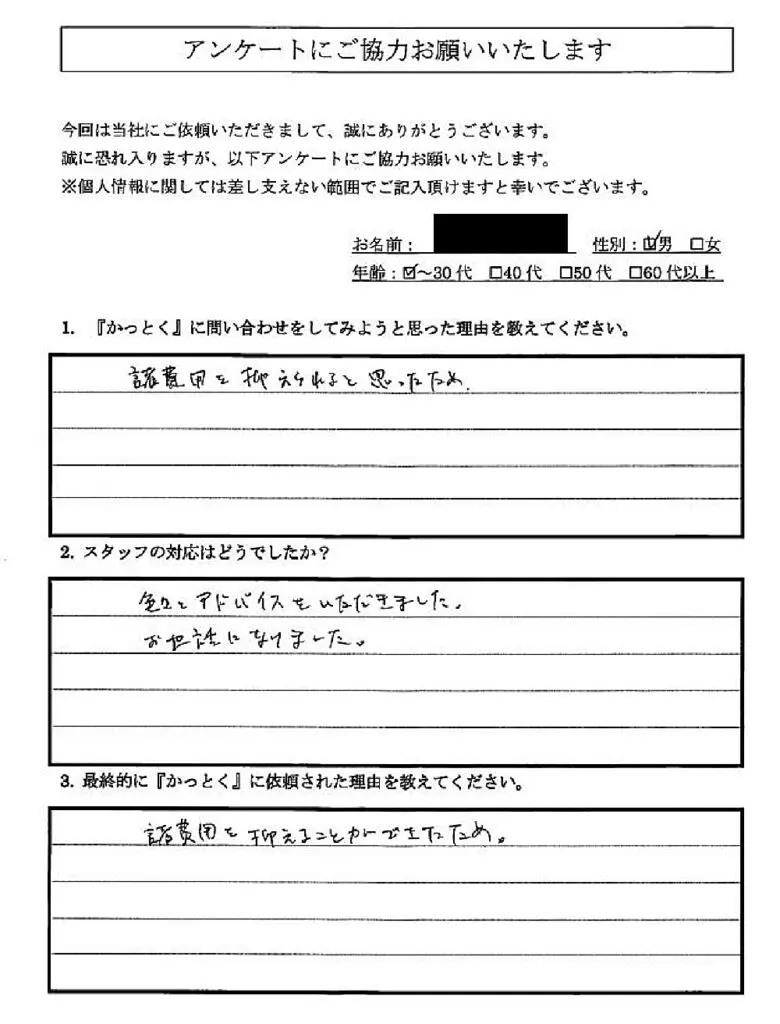 アンケートにご協力お願いいたします
今回は当社にご依頼いただきまして、誠にありがとうございます。
誠に恐れ入りますが、以下アンケートにご協力お願いいたします。
※個人情報に関しては差し支えない範囲でご記入頂けますと幸いでございます。
お名前： 性別：☑男 □女
年齢：☑～30代 □40代 □50代 □60代以上
1. 『かっとく』に問い合わせをしてみようと思った理由を教えてください。
諸費用を抑えられると思ったため.
2. スタッフの対応はどうでしたか？
色々とアドバイスをいただきました。
お世話になりました。
3. 最終的に『かっとく』に依頼された理由を教えてください。
諸費用を抑えることができたため。